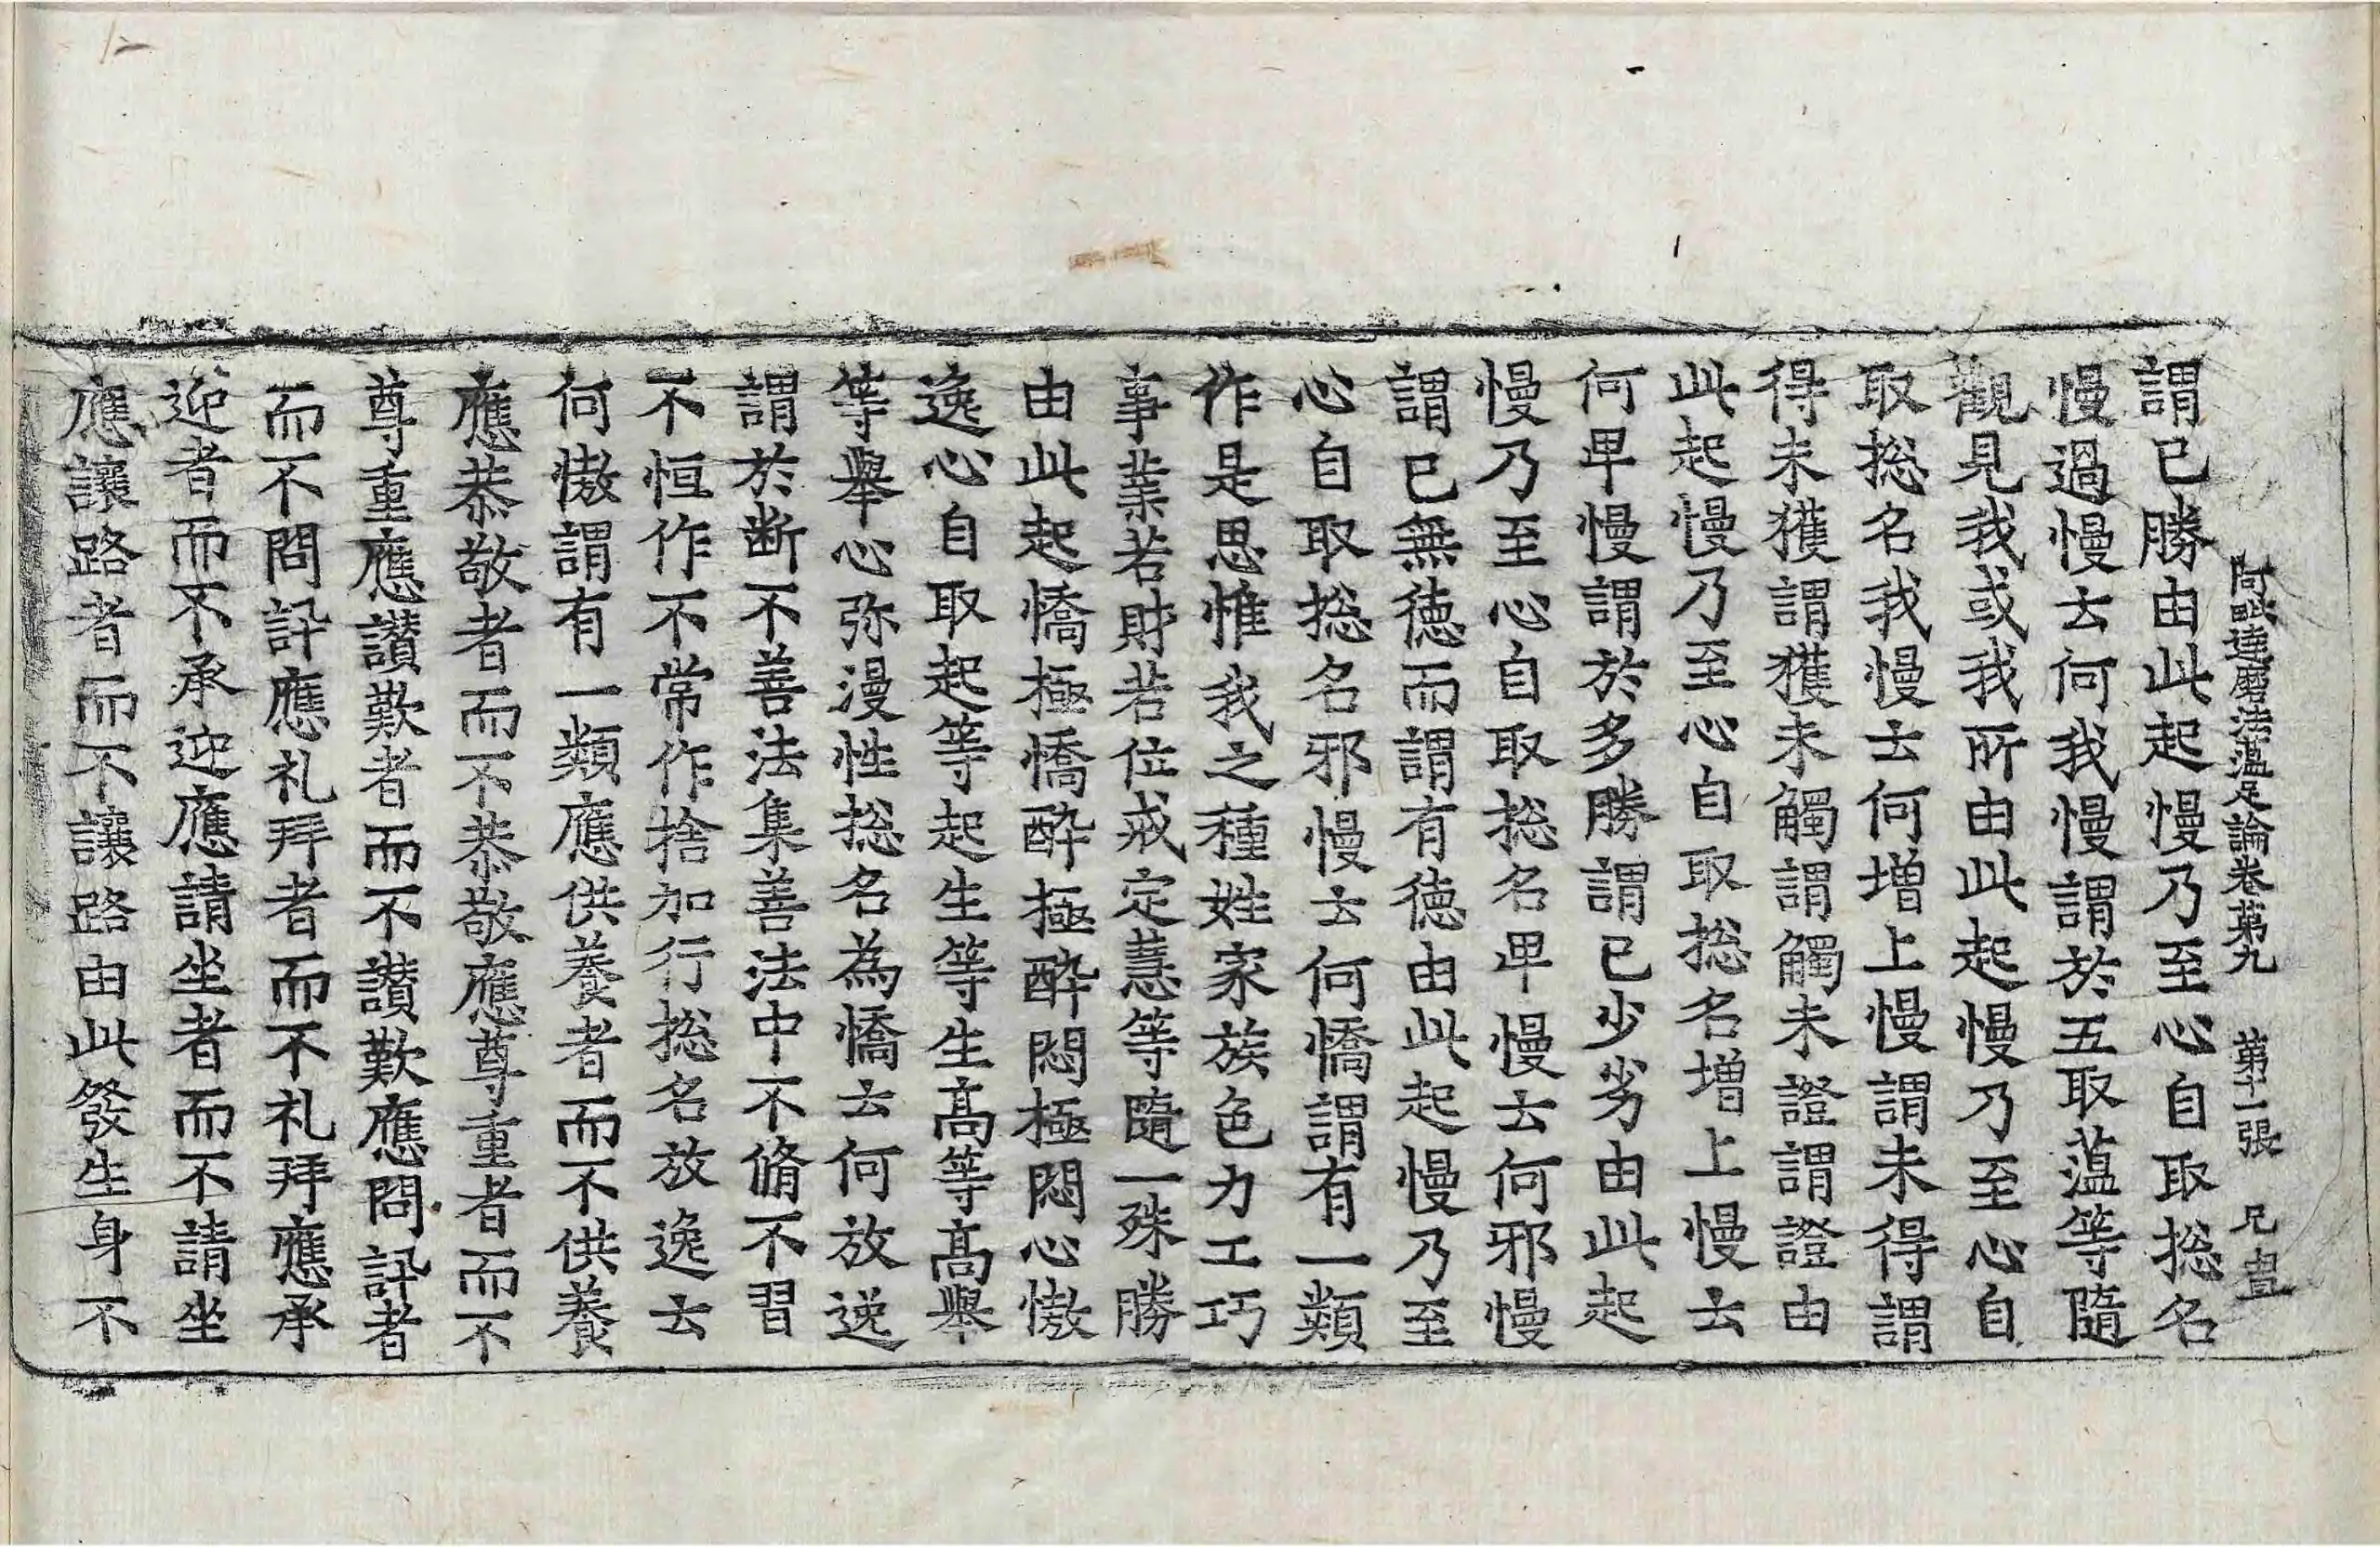 阿毗達磨法蘊足論卷第九 第十一張 兄
謂已勝由此起慢乃至心自取揔名
慢過慢云何我慢謂於五取蘊等隨
觀見我或我所由此起慢乃至心自
取揔名我慢云何增上慢謂未得謂
得未獲謂獲未觸謂觸未證謂證由
此起慢乃至心自取揔名增上慢云
何卑慢謂於多勝謂已少劣由此起
慢乃至心自取揔名卑慢云何邪慢
謂已無德而謂有德由此起慢乃至
心自取揔名邪慢云何憍謂有一類
作是思惟我之種姓家族色力工巧
事業若財若位戒定慧等隨一殊勝
由此起憍極憍醉極醉悶極悶心慠
逸心自取起等起生等生高等高舉
等舉心弥漫性揔名為憍云何放逸
謂於断不善法集善法中不脩不習
不恒作不常作捨加行揔名放逸云
何慠謂有一類應供養者而不供養
應恭敬者而不恭敬應尊重者而不
尊重應讚歎者而不讚歎應問訊者
而不問訊應礼拜者而不礼拜應承
迎者而不承迎應請坐者而不請坐
應讓路者而不讓路由此發生身不